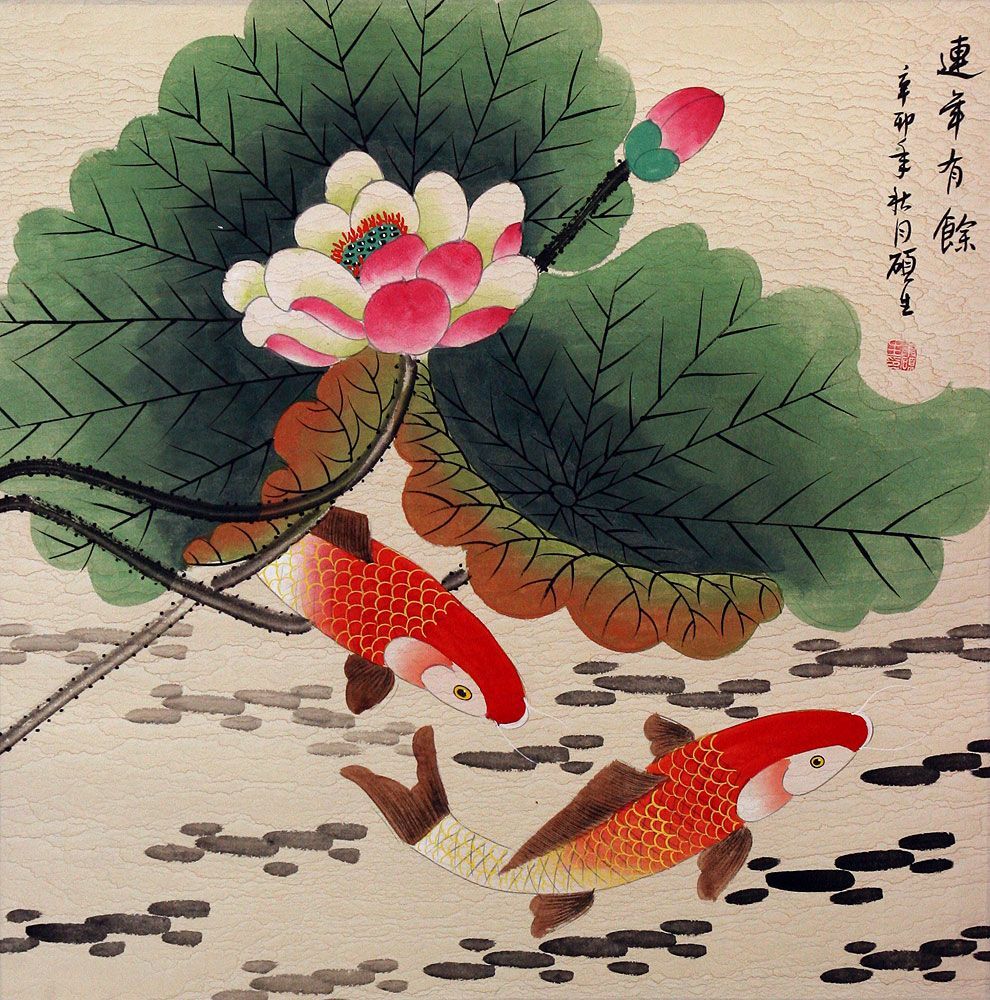 連年有餘
辛卯年秋月碩生